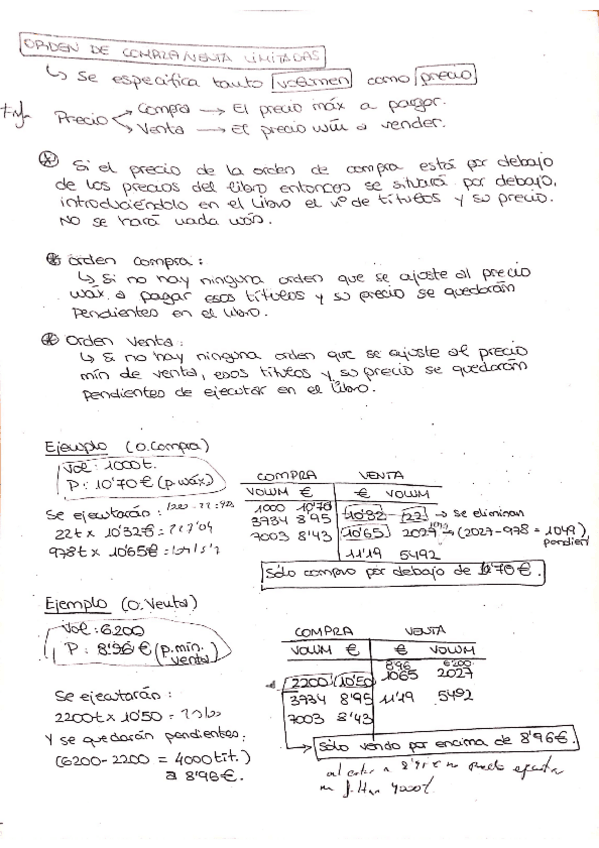 ORDEN DE COMPRA/VENTA LIMITADAS
↳ Se especifica tanto volumen como precio
Precio Compra → El precio máx a pagar.
Venta → El precio mín a vender.
Si el precio de la orden de compra está por debajo
de los precios del libro entonces se situará por debajo,
introduciéndolo en el libro el nº de títulos y su precio.
NO se hará nada más.
Orden compra:
↳ Si no hay ninguna orden que se ajuste al precio
máx. a pagar esos títulos y su precio se quedarán
pendientes en el libro.
Orden Venta:
↳ Si no hay ninguna orden que se ajuste al precio
mín de venta, esos títulos y su precio se quedarán
pendientes de ejecutar en el libro.
Ejemplo (O.Compra)
Vol: 1000t.
P: 10'70€ (p.máx)
Se ejecutarán:
22t x 10'32€ =
978t x 10'65€ =
COMPRA VENTA
VOLUM € € VOLUM
1000 10'70 10'32 22 → se eliminan
3934 8'95 10'65 2027 → (2027-978 = 1049)
pendien
7003 8'43
11'19 5492
Sólo compro por debajo de 10'70€.
Ejemplo (O.Venta)
Vol: 6200
P: 8'96€ (p.mín. venta)
Se ejecutarán:
2200t x 10'50 =
Y se quedarán pendientes:
(6200-2200 = 4000 tít.)
a 8'96€.
COMPRA VENTA
VOLUM € € VOLUM
8'96 6200
2200 10'50 1065 2027
3934 8'95 11'19 5492
7003 8'43
Sólo vendo por encima de 8'96€.